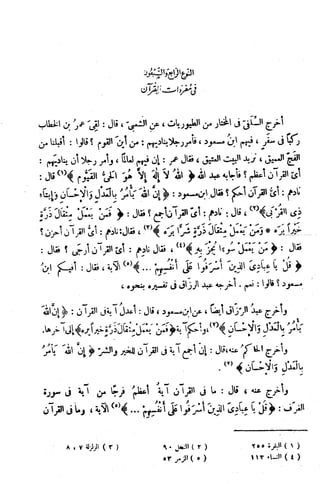 النوع الرابع والسبعون
في مفردات القرآن
أخرج السلفي في المختار من الطيوريات ، عن الشعبي ، قال : لقي عمر بن الخطاب
ركبا في سفر ، فيهم ابن مسعود ، فأمر رجلا يناديهم : من أين القوم ؟ قالوا : أقبلنا من
الفج العميق ، نريد البيت العتيق ، فقال عمر : إن فيهم لعالما ، وأمر رجلا أن يناديهم :
أي القرآن أعظم ؟ فأجابه عبد الله ﴿ اللهُ لَا إِلَهَ إِلَّا هُوَ الْحَيُّ الْقَيُّومُ ﴾(١) قال :
نادهم : أي القرآن أحكم ؟ فقال ابن مسعود : ﴿ إِنَّ اللهَ يَأْمُرُ بِالْعَدْلِ وَالْإِحْسَانِ وَإِيتَاءِ
ذِي الْقُرْبَى ﴾(٢) ، قال : نادهم : أي القرآن أجمع ؟ فقال : ﴿ فَمَنْ يَعْمَلْ مِثْقَالَ ذَرَّةٍ
خَيْراً يَرَهُ * وَمَنْ يَعْمَلْ مِثْقَالَ ذَرَّةٍ شَرًّا يَرَهُ ﴾(٣) ، فقال : نادهم : أي القرآن أحزن ؟
فقال : ﴿ مَنْ يَعْمَلْ سُوءاً يُجْزَ بِهِ ﴾(٤) ، قال : نادهم : أي القرآن أرجى ؟ فقال :
﴿ قُلْ يَا عِبَادِيَ الَّذِينَ أَسْرَفُوا عَلَى أَنْفُسِهِمْ ... ﴾(٥) الآية ، فقال : أفيكم ابن
مسعود ؟ قالوا : نعم . أخرجه عبد الرزاق في تفسيره بنحوه ،
وأخرج عبد الرزاق أيضا ، عن ابن مسعود ، قال : أعدل آية في القرآن : ﴿ إِنَّ اللهَ
يَأْمُرُ بِالْعَدْلِ وَالْإِحْسَانِ ﴾(٢) وأحكم آية ﴿ فَمَنْ يَعْمَلْ مِثْقَالَ ذَرَّةٍ خَيْراً يَرَهُ ﴾ إلى آخرها.
وأخرج الحاكم عنه ، قال : إن أجمع آية في القرآن للخير والشر ﴿ إِنَّ اللهَ يَأْمُرُ
بِالْعَدْلِ وَالْإِحْسَانِ ﴾(٢) .
وأخرج عنه ، قال : ما في القرآن آية أعظم فرجا من آية في سورة
الغرف : ﴿ قُلْ يَا عِبَادِيَ الَّذِينَ أَسْرَفُوا عَلَى أَنْفُسِهِمْ ... ﴾(٥) الآية ، وما في القرآن
(١) البقرة ٢٥٥ (٢) النحل ٩٠ (٣) الزلزلة ٧ ، ٨
(٤) النساء ١١٣ (٥) الزمر ٥٣